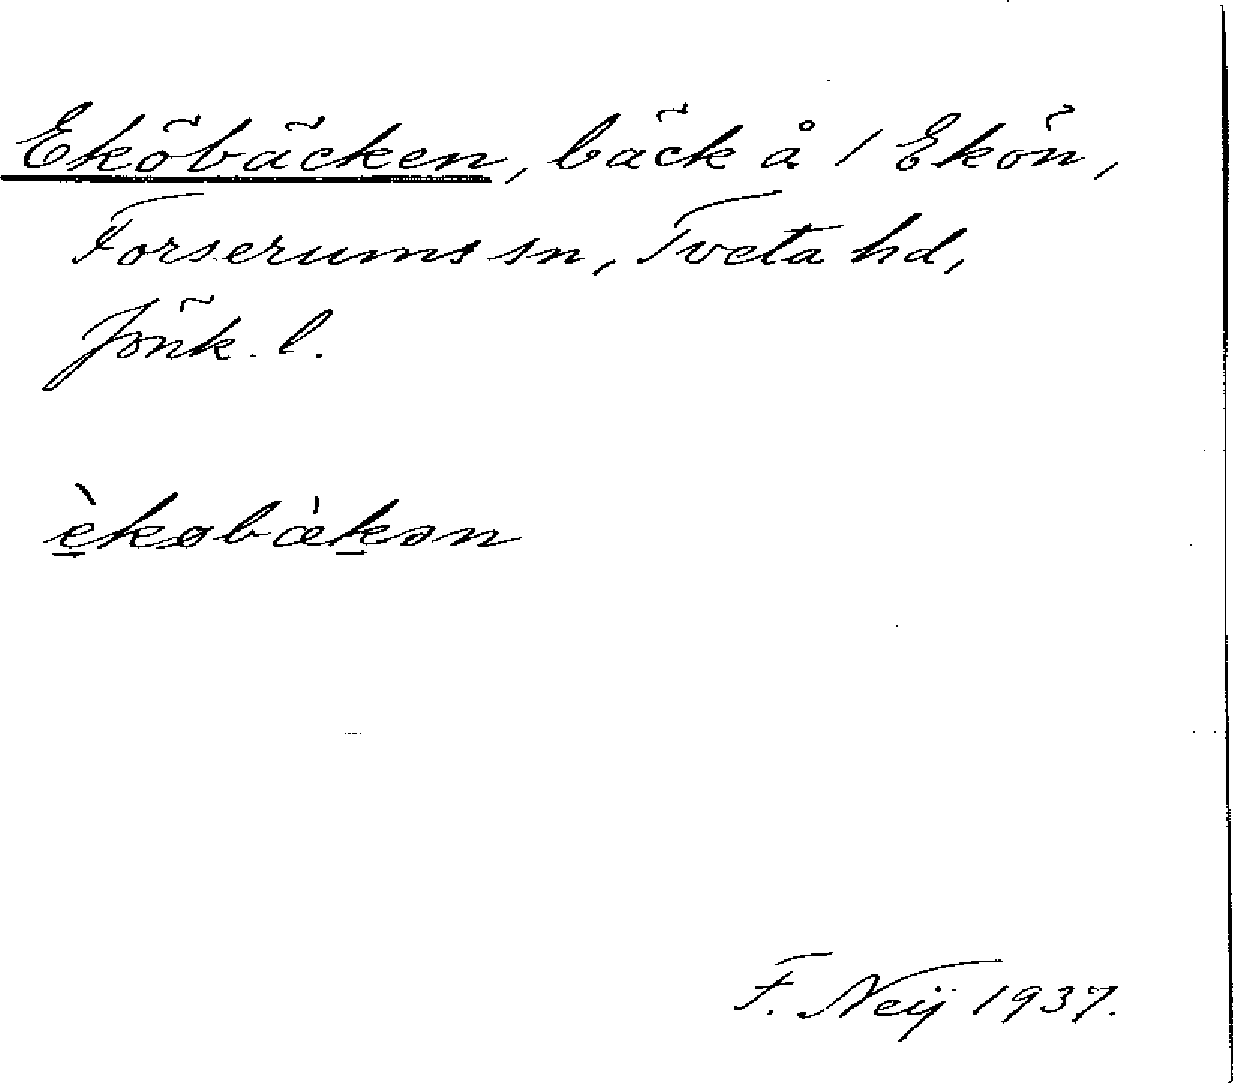 Eköbäcken, bäck å 1 Ekön,
Forserums sn, Tveta hd,
Jönk. l.
è̱købæ̀ḵən
F. Neij 1937.